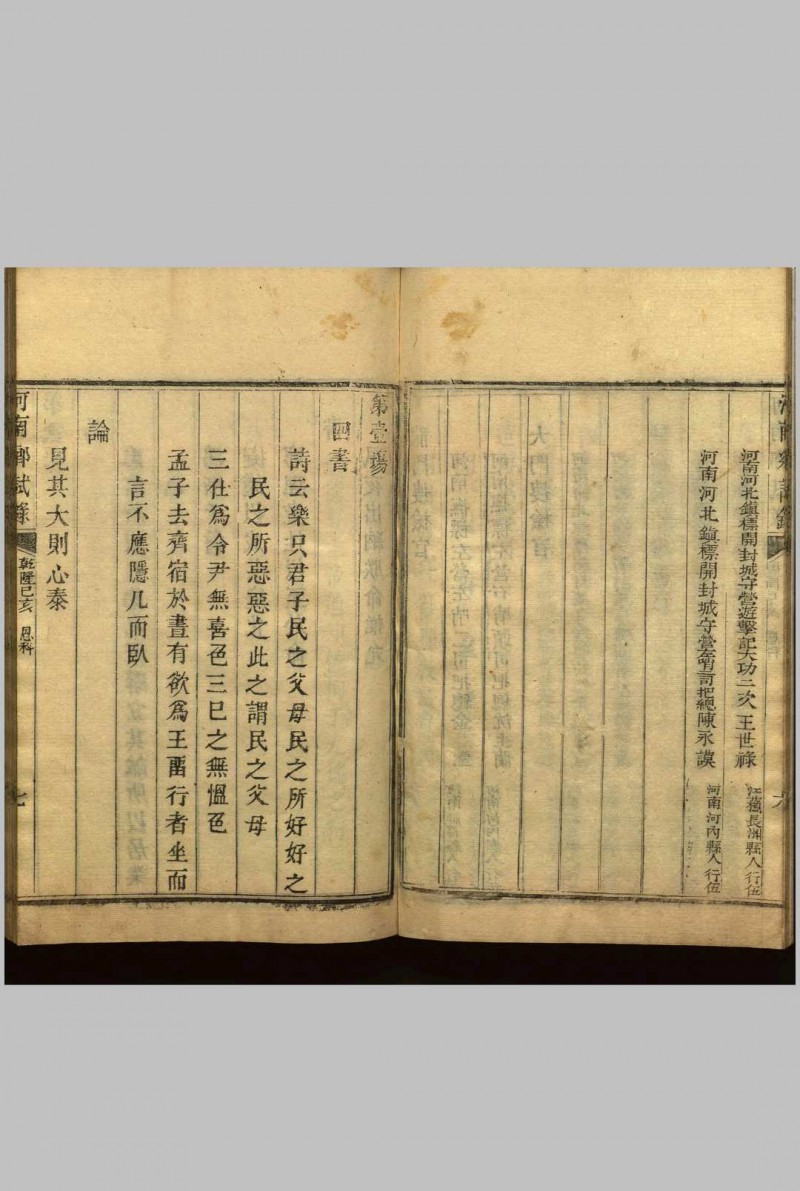 河南鄉試錄
六
河南河北鎮標開封城守營遊擊記大功二次王世祿
江蘇長洲縣人行伍
河南河北鎮標開封城守營左哨司把總陳永謨
河南河內縣人行伍
第壹場
四書
詩云樂只君子民之父母民之所好好之
民之所惡惡之此之謂民之父母
三仕爲令尹無喜色三已之無慍色
孟子去齊宿於晝有欲爲王畱行者坐而
言不應隱几而臥
論
見其大則心泰
河南鄉試錄
乾隆己亥 恩科
七